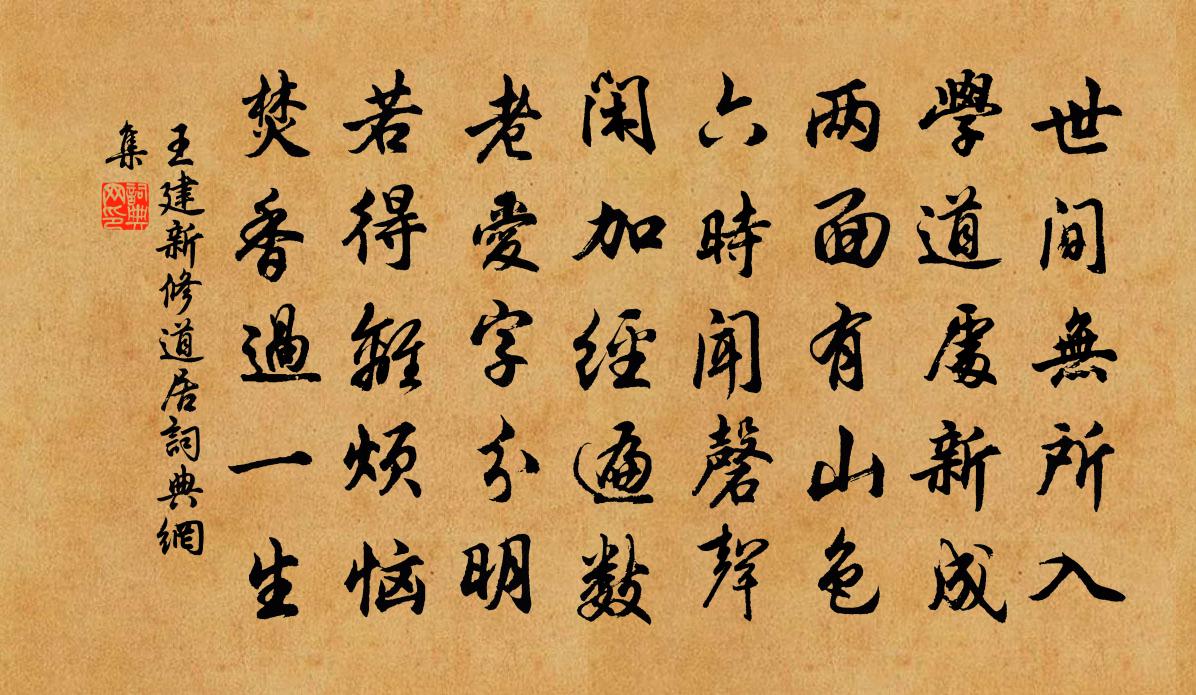 世间無所入
學道處新成
两面有山色
六時闻磬聲
闲加經遍數
老愛字分明
若得離烦恼
焚香過一生
王建新修道居詞典網
集
詞典
网印